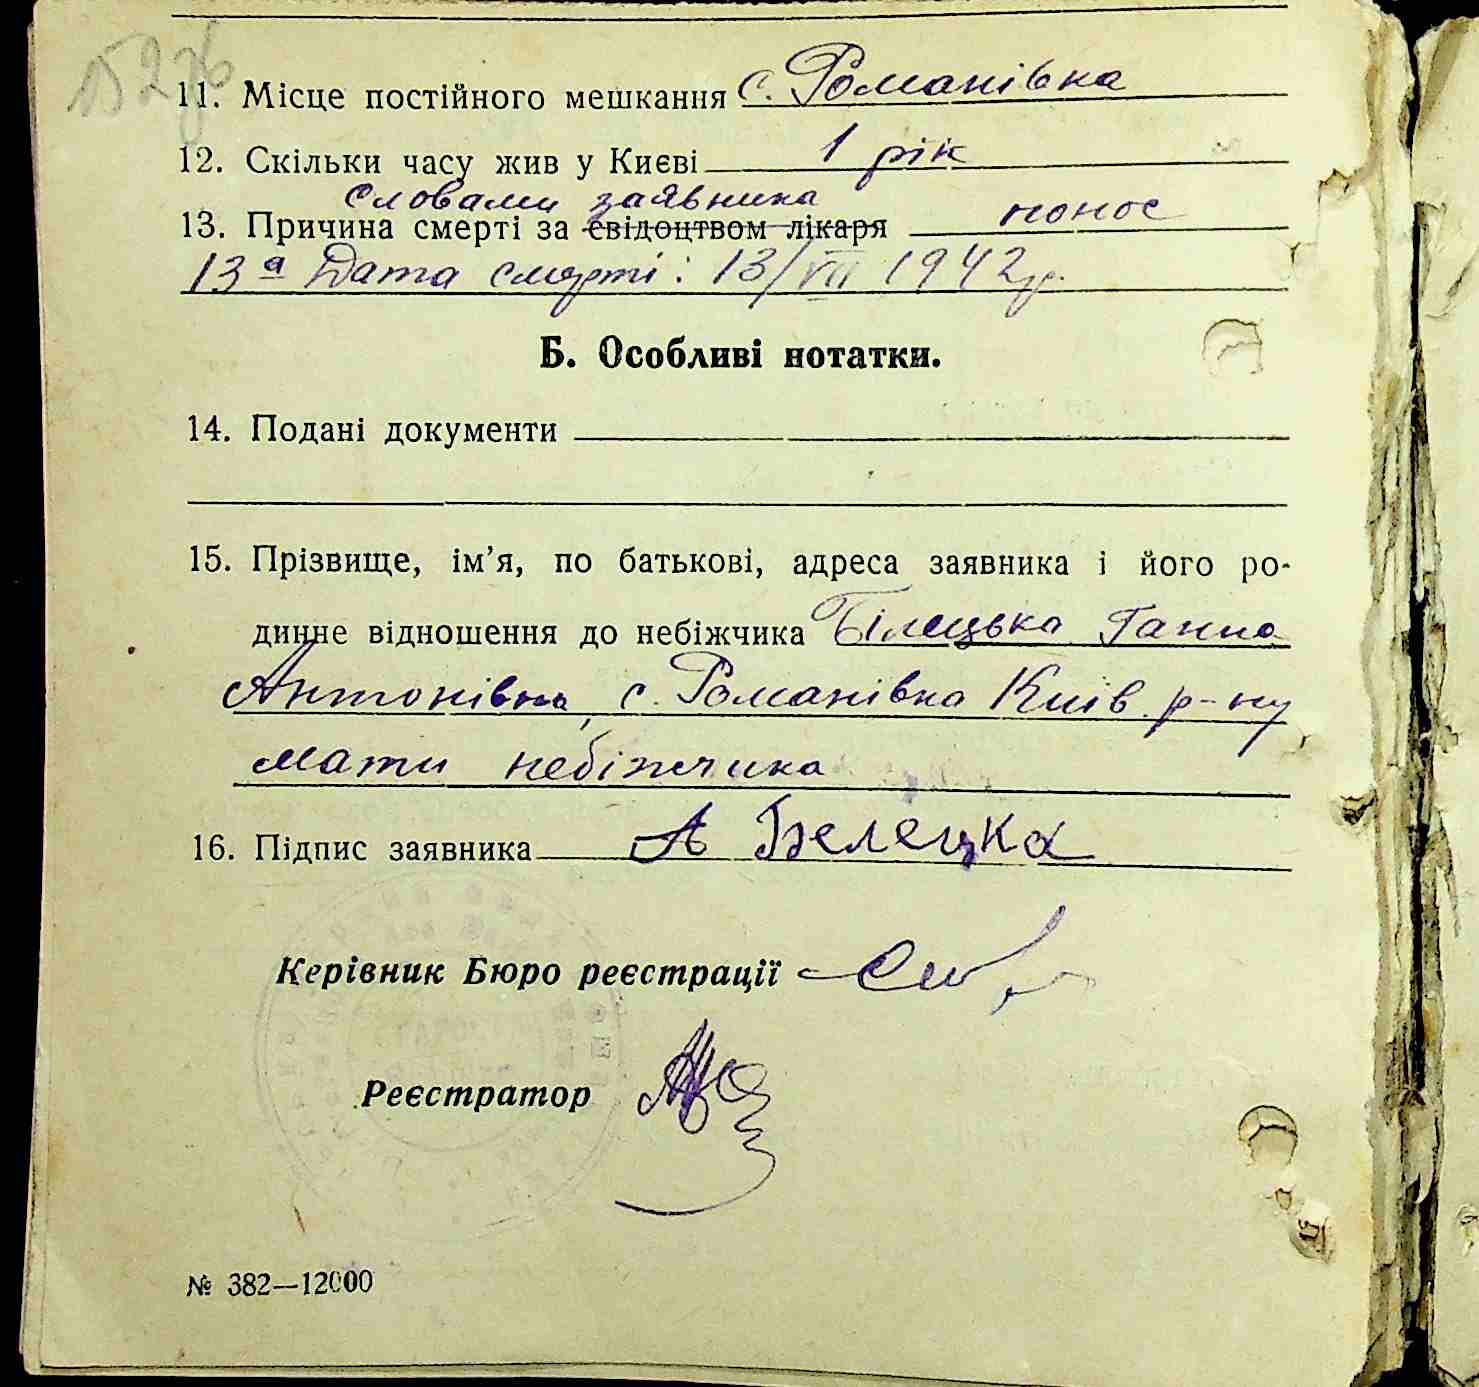 152зв
11. Місце постійного мешкання с. Романівка
12. Скільки часу жив у Києві 1 рік
словами заявника
13. Причина смерті за свідоцтвом лікаря понос
13а Дата смерті: 13/VII 1942 р.
Б. Особливі нотатки.
14. Подані документи
15. Прізвище, ім’я, по батькові, адреса заявника і його ро-
динне відношення до небіжчика Білецька Ганна
Антонівна, с. Романівка Київ. р-ну
мати небіжчика
16. Підпис заявника А Белецка
Керівник Бюро реєстрації
Реєстратор
№ 382—12000